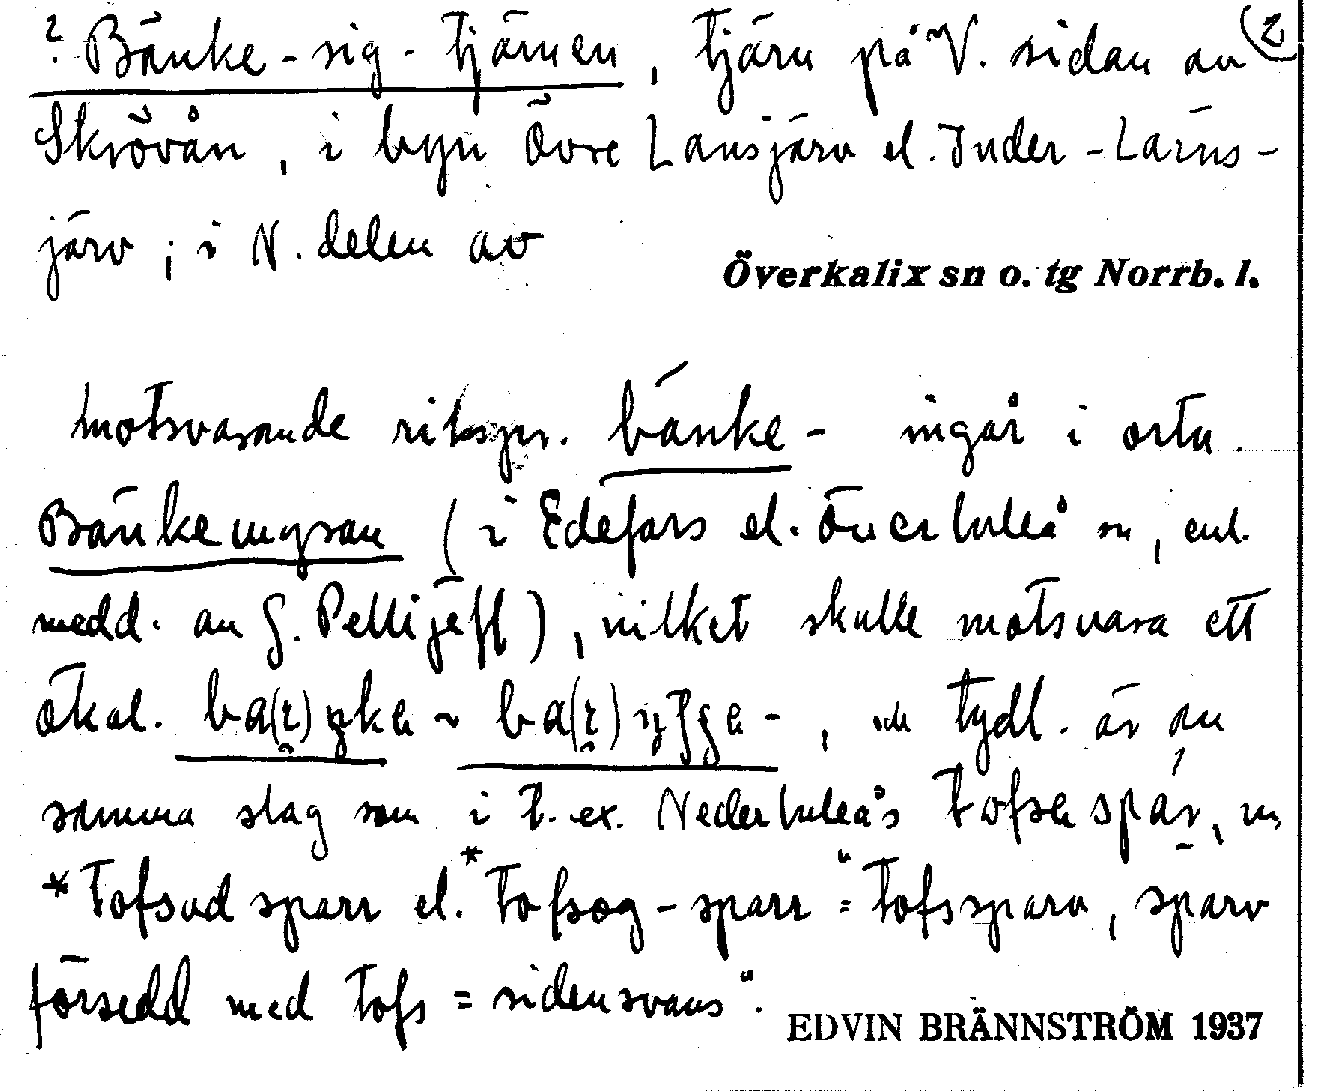 ? Bänke-sig-tjärnen, tjärn på V. sidan av (2
Skrövån, i byn Övre Lansjärv el. Inder-Läns-
järv, i N. delen av
Överkalix sn o. tg Norrb. l.
motsvarande riksspr. bänke- ingår i ortn.
Bänkemyran (i Edefors el. Överluleå sn, enl.
medd. av G. Pellijeff), vilket skulle motsvara ett
ökal. ba(r)ŋke ~ ba(r)ŋʃʃe-, och tydl. är av
samma slag som i t. ex. Nederluleås tofsespár, m
*tofsud sparr el. *tofsog-sparr "tofssparv, sparv
försedd med tofs = sidensvans".
EDVIN BRÄNNSTRÖM 1937